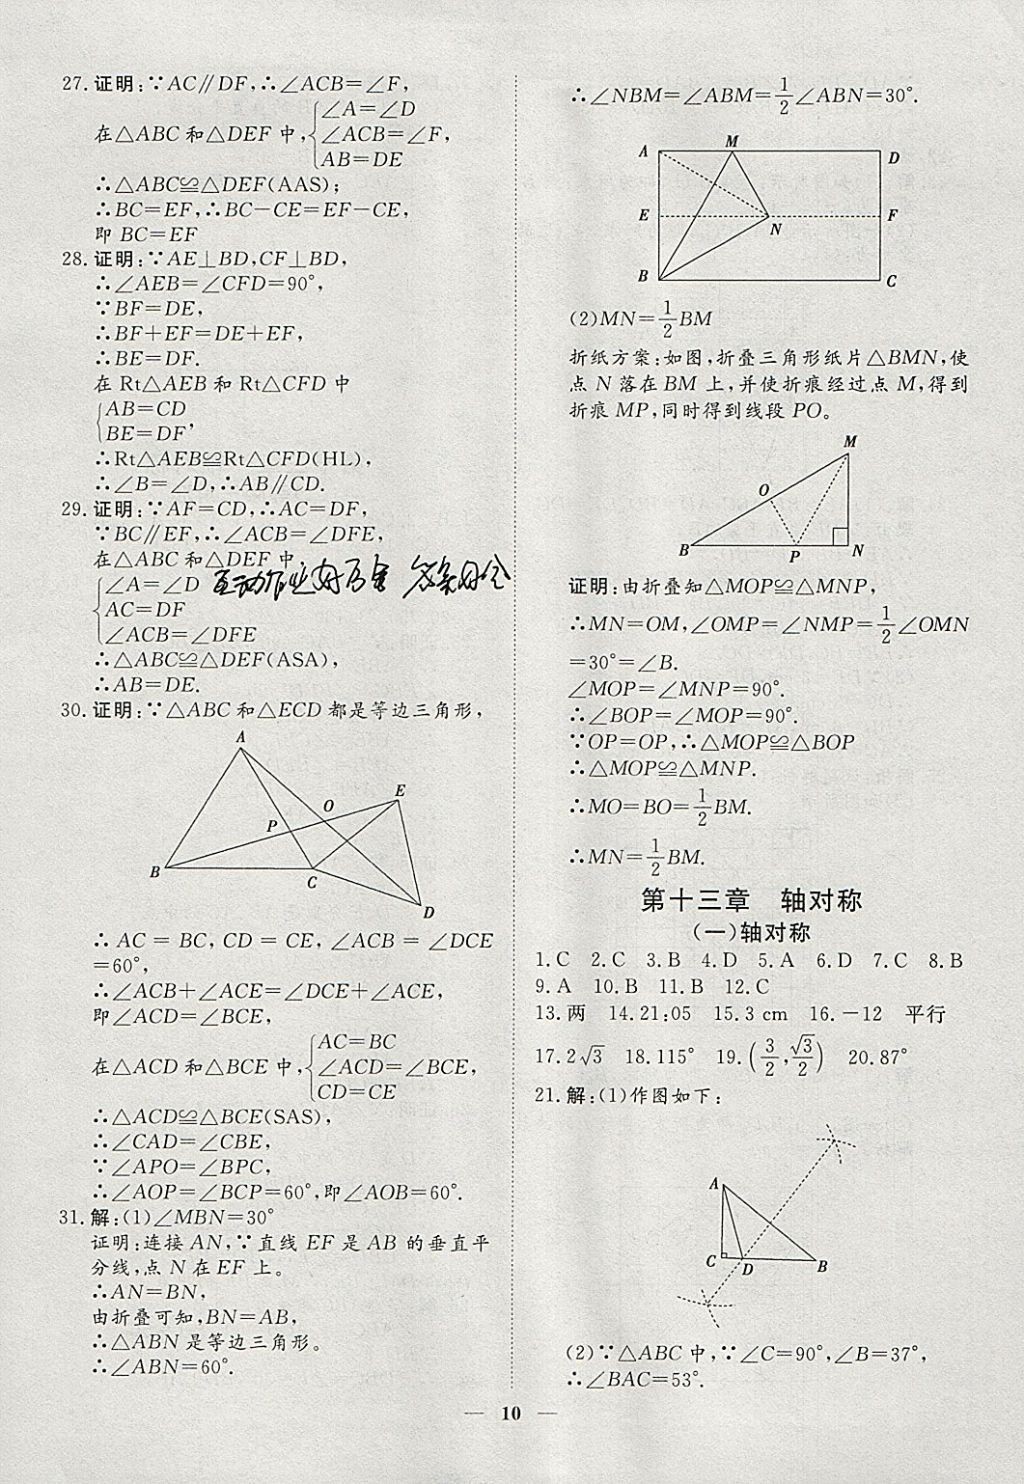 27. 证明:∵AC∥DF,∴∠ACB=∠F,
∠A=∠D
在△ABC和△DEF中,{∠ACB=∠F,
AB=DE
∴△ABC≌△DEF(AAS);
∴BC=EF,∴BC-CE=EF-CE,
即 BC=EF
28. 证明:∵AE⊥BD,CF⊥BD,
∴∠AEB=∠CFD=90°,
∵BF=DE,
∴BF+EF=DE+EF,
∴BE=DF.
在 Rt△AEB 和 Rt△CFD 中
{AB=CD
BE=DF,
∴Rt△AEB≌Rt△CFD(HL),
∴∠B=∠D,∴AB∥CD.
29. 证明:∵AF=CD,∴AC=DF,
∵BC∥EF,∴∠ACB=∠DFE,
在△ABC 和△DEF 中
{∠A=∠D
AC=DF
∠ACB=∠DFE
∴△ABC≌△DEF(ASA),
∴AB=DE.
30. 证明:∵△ABC 和△ECD 都是等边三角形,
A
E
O
P
B
C
D
∴AC = BC, CD = CE, ∠ACB = ∠DCE
=60°,
∴∠ACB+∠ACE=∠DCE+∠ACE,
即∠ACD=∠BCE,
AC=BC
在△ACD 和△BCE 中,{∠ACD=∠BCE,
CD=CE
∴△ACD≌△BCE(SAS),
∴∠CAD=∠CBE,
∵∠APO=∠BPC,
∴∠AOP=∠BCP=60°,即∠AOB=60°.
31. 解:(1)∠MBN=30°
证明:连接 AN,∵直线 EF 是 AB 的垂直平
分线,点 N 在 EF 上。
∴AN=BN,
由折叠可知,BN=AB,
∴△ABN 是等边三角形。
∴∠ABN=60°.
∴∠NBM=∠ABM=1/2∠ABN=30°.
A M D
E N F
B C
(2)MN=1/2BM
折纸方案:如图,折叠三角形纸片△BMN,使
点 N 落在 BM 上,并使折痕经过点 M,得到
折痕 MP,同时得到线段 PO。
M
O
B P N
证明:由折叠知△MOP≌△MNP,
∴MN=OM,∠OMP=∠NMP=1/2∠OMN
=30°=∠B.
∠MOP=∠MNP=90°.
∴∠BOP=∠MOP=90°.
∵OP=OP,∴△MOP≌△BOP
∴△MOP≌△MNP.
∴MO=BO=1/2BM.
∴MN=1/2BM.
第十三章 轴对称
(一)轴对称
1. C 2. C 3. B 4. D 5. A 6. D 7. C 8. B
9. A 10. B 11. B 12. C
13. 两 14. 21:05 15. 3 cm 16. -12 平行
17. 2√3 18. 115° 19. (3/2, √3/2) 20. 87°
21. 解:(1)作图如下:
A
C D B
(2)∵△ABC 中,∵∠C=90°,∠B=37°,
∴∠BAC=53°.
— 10 —